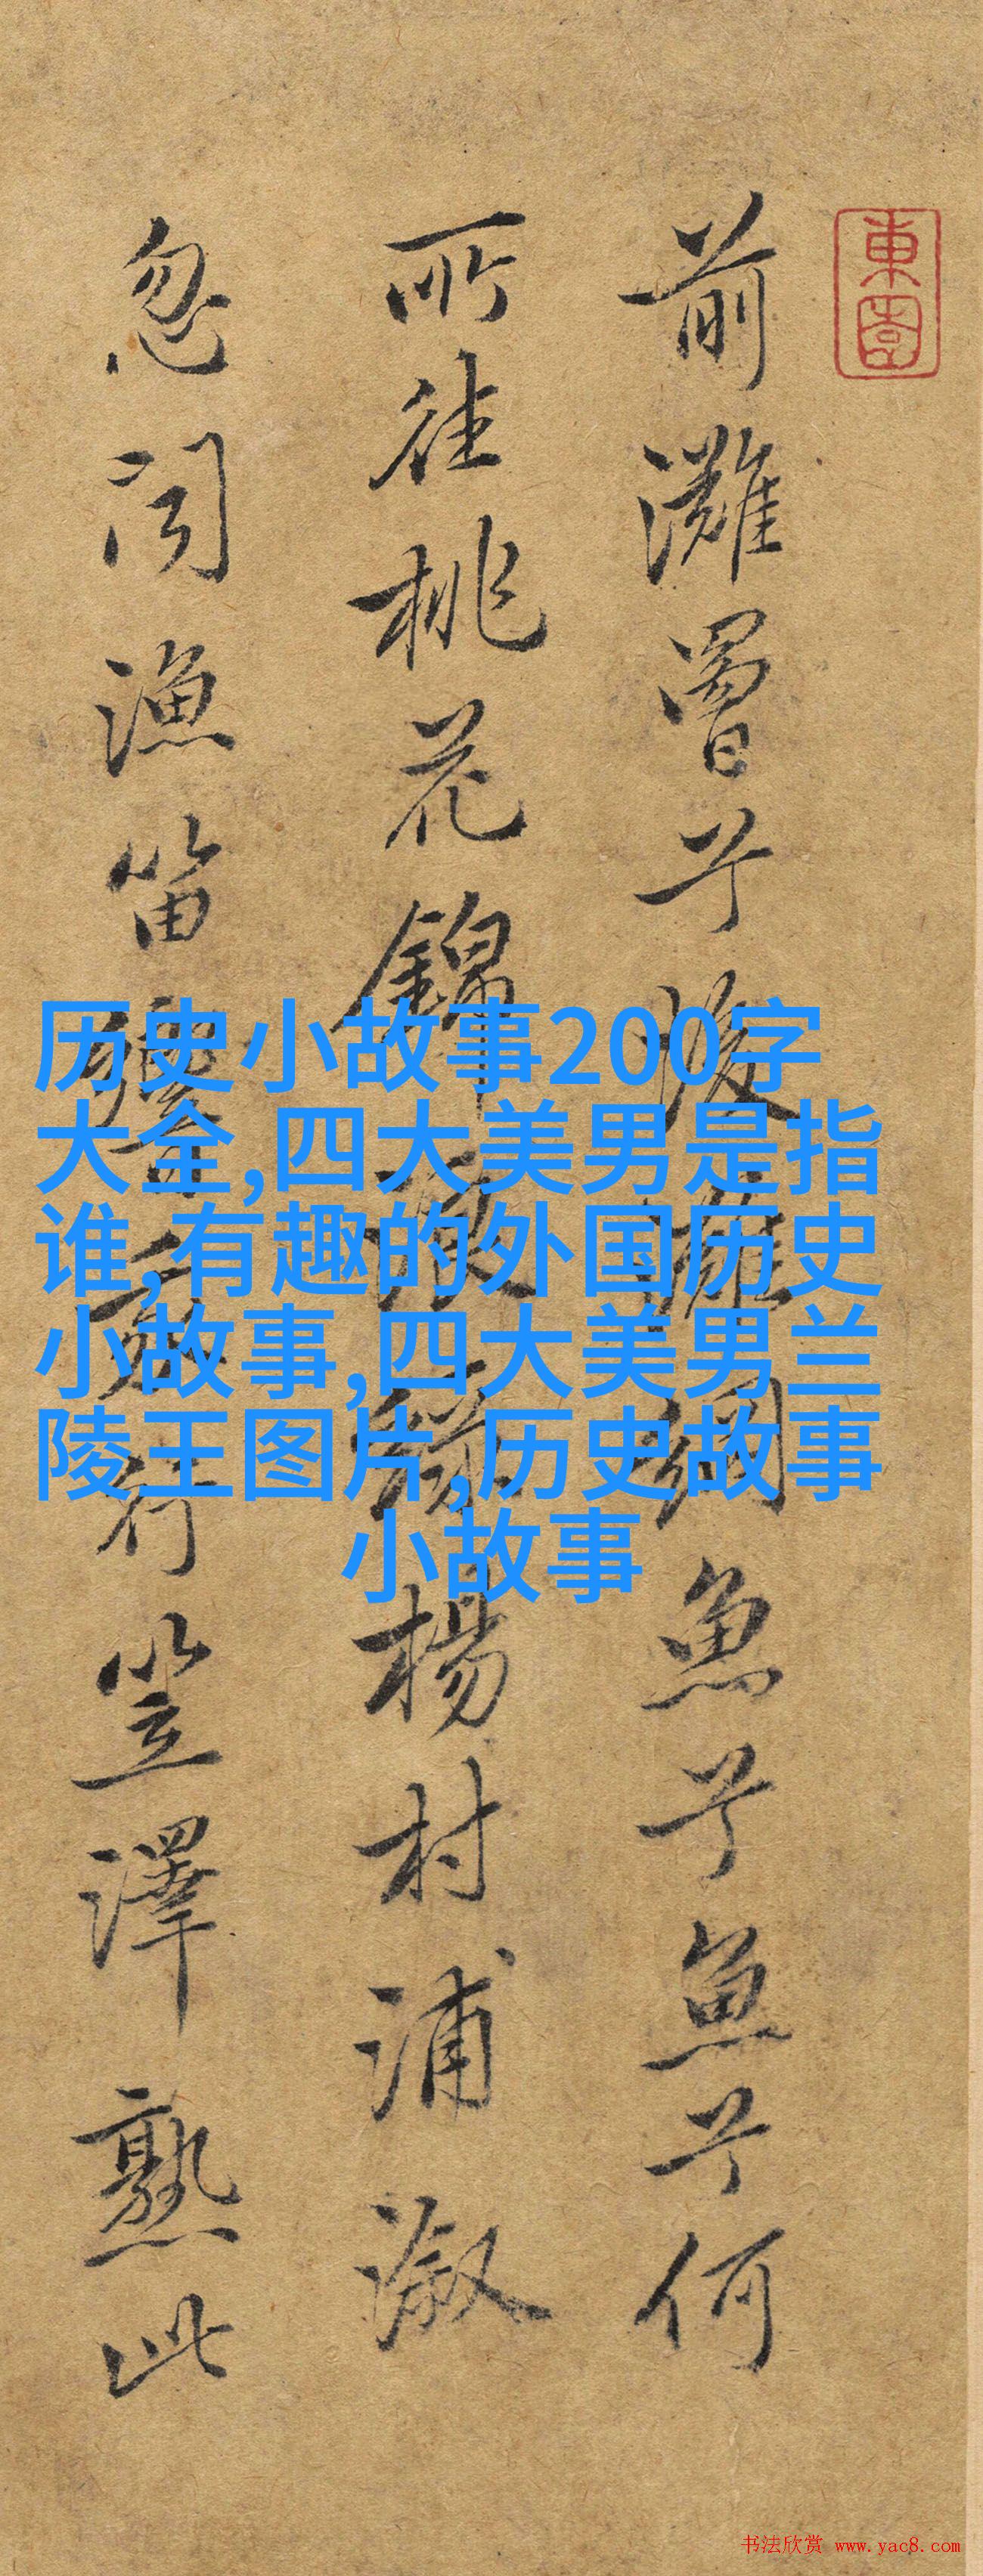 前灘罾兮後灘網魚兮魚兮何
所往桃花錦浪綠楊村浦溆
忽聞漁笛行笠澤熟此
历史小故事200字
大全,四大美男是指
谁,有趣的外国历史
小故事,四大美男兰
陵王图片,历史故事
小故事
书法欣赏 www.yac8.com